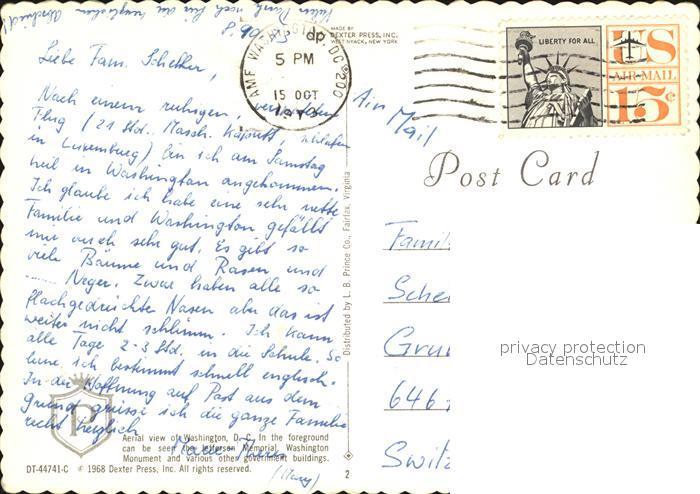 Vielen Dank noch für die
P. 90
MADE BY
DEXTER PRESS, INC.
WEST NYACK, NEW YORK
AMF WASHINGTON DC 200
5 PM
15 OCT
1973
LIBERTY FOR ALL
US
AIR MAIL
15¢
Air Mail
Post Card
Liebe Fam. Schelker,
Nach einem ruhigen,
Flug (21 Std. Masch. kaputt, schlafen
in Luxemburg) bin ich am Samstag
heil in Washington angekommen.
Ich glaube ich habe eine sehr nette
Familie und Washington gefällt
mir auch sehr gut. Es gibt so
viele Bäume und Rasen und
Neger. Zwar haben alle so
flachgedrückte Nasen aber das ist
weiter nicht schlimm. Ich kann
alle Tage 2-3 Std. in die Schule. So
lerne ich bestimmt schnell englisch.
In der Hoffnung auf Post aus dem
Grund grüsse ich die ganze Familie
recht herzlich
Distributed by L. B. Prince Co., Fairfax, Virginia
Famil
Sche
Gru
646
Switz
privacy protection
Datenschutz
P
Aerial view of Washington, D. C. In the foreground
can be seen the Jefferson Memorial, Washington
Monument and various other government buildings.
DT-44741-C © 1968 Dexter Press, Inc. All rights reserved.
2